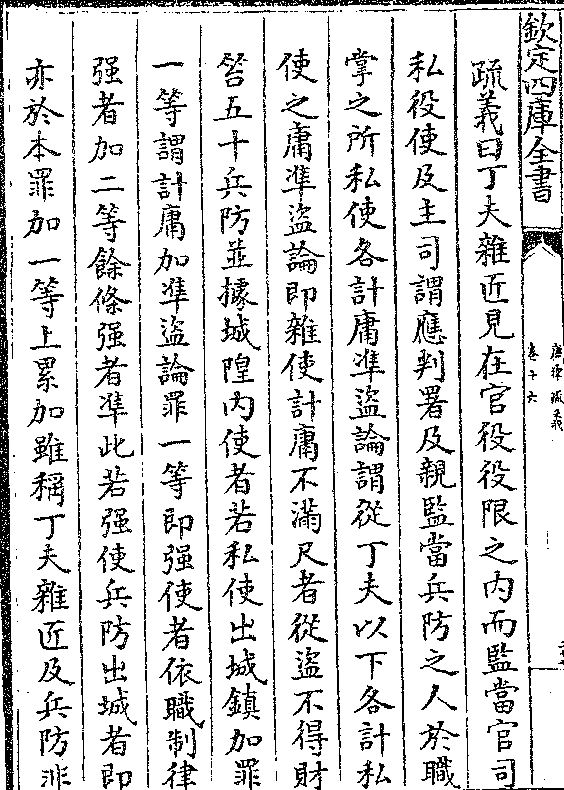 欽定四庫全書
唐律疏義
卷十六
疏義曰丁夫雜匠見在官役役限之内而監當官司
私役使及主司謂應判署及親監當兵防之人於職
掌之所私使各計庸準盜論謂從丁夫以下各計私
使之庸準盜論即雜使計庸不滿尺者從盜不得財
笞五十兵防並據城隍内使者若私使出城鎮加罪
一等謂計庸加準盜論罪一等即强使者依職制律
强者加二等餘條强者準此若强使兵防出城者即
亦於本罪加一等上累加雖稱丁夫雜匠及兵防非